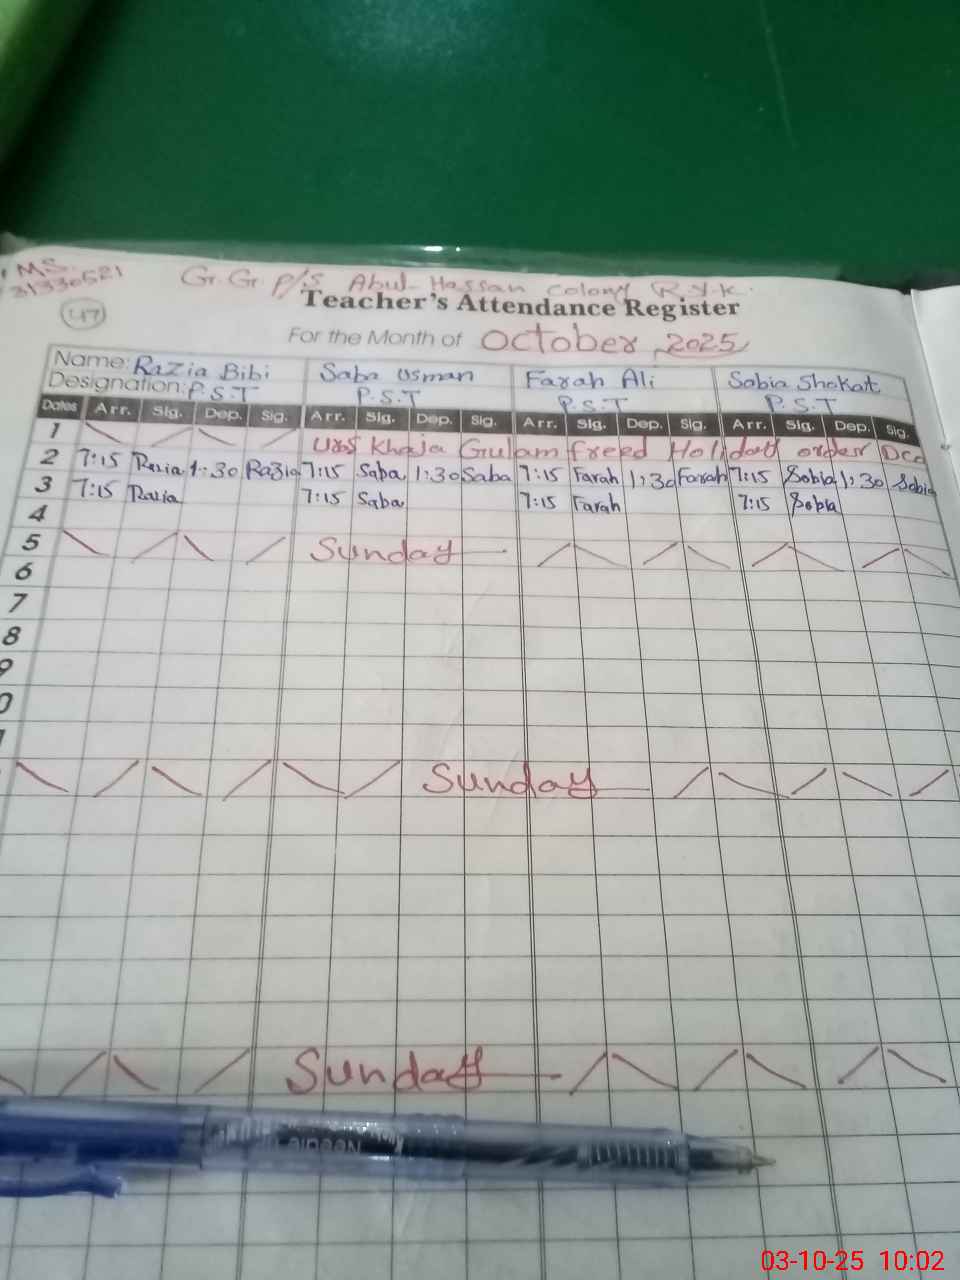 MS.
31330521
G.G. P/S Abul-Hassan colony R.Y.K.
Teacher's Attendance Register
47
For the Month of October 2025
Name: Razia Bibi Saba Usman Farah Ali Sobia Shokat
Designation: P.S.T P.S.T P.S.T P.S.T
Dates Arr. Sig. Dep. Sig. Arr. Sig. Dep. Sig. Arr. Sig. Dep. Sig. Arr. Sig. Dep. Sig.
1 Urs Khaja Gulam freed Holiday order
2 7:15 Razia 1:30 Razia 7:15 Saba 1:30 Saba 7:15 Farah 1:30 Farah 7:15 Sobia 1:30 Sobia
3 7:15 Razia 7:15 Saba 7:15 Farah 7:15 Sobia
4
5 Sunday
6
7
8
9
0
1
Sunday
Sunday
Needle
03-10-25 10:02